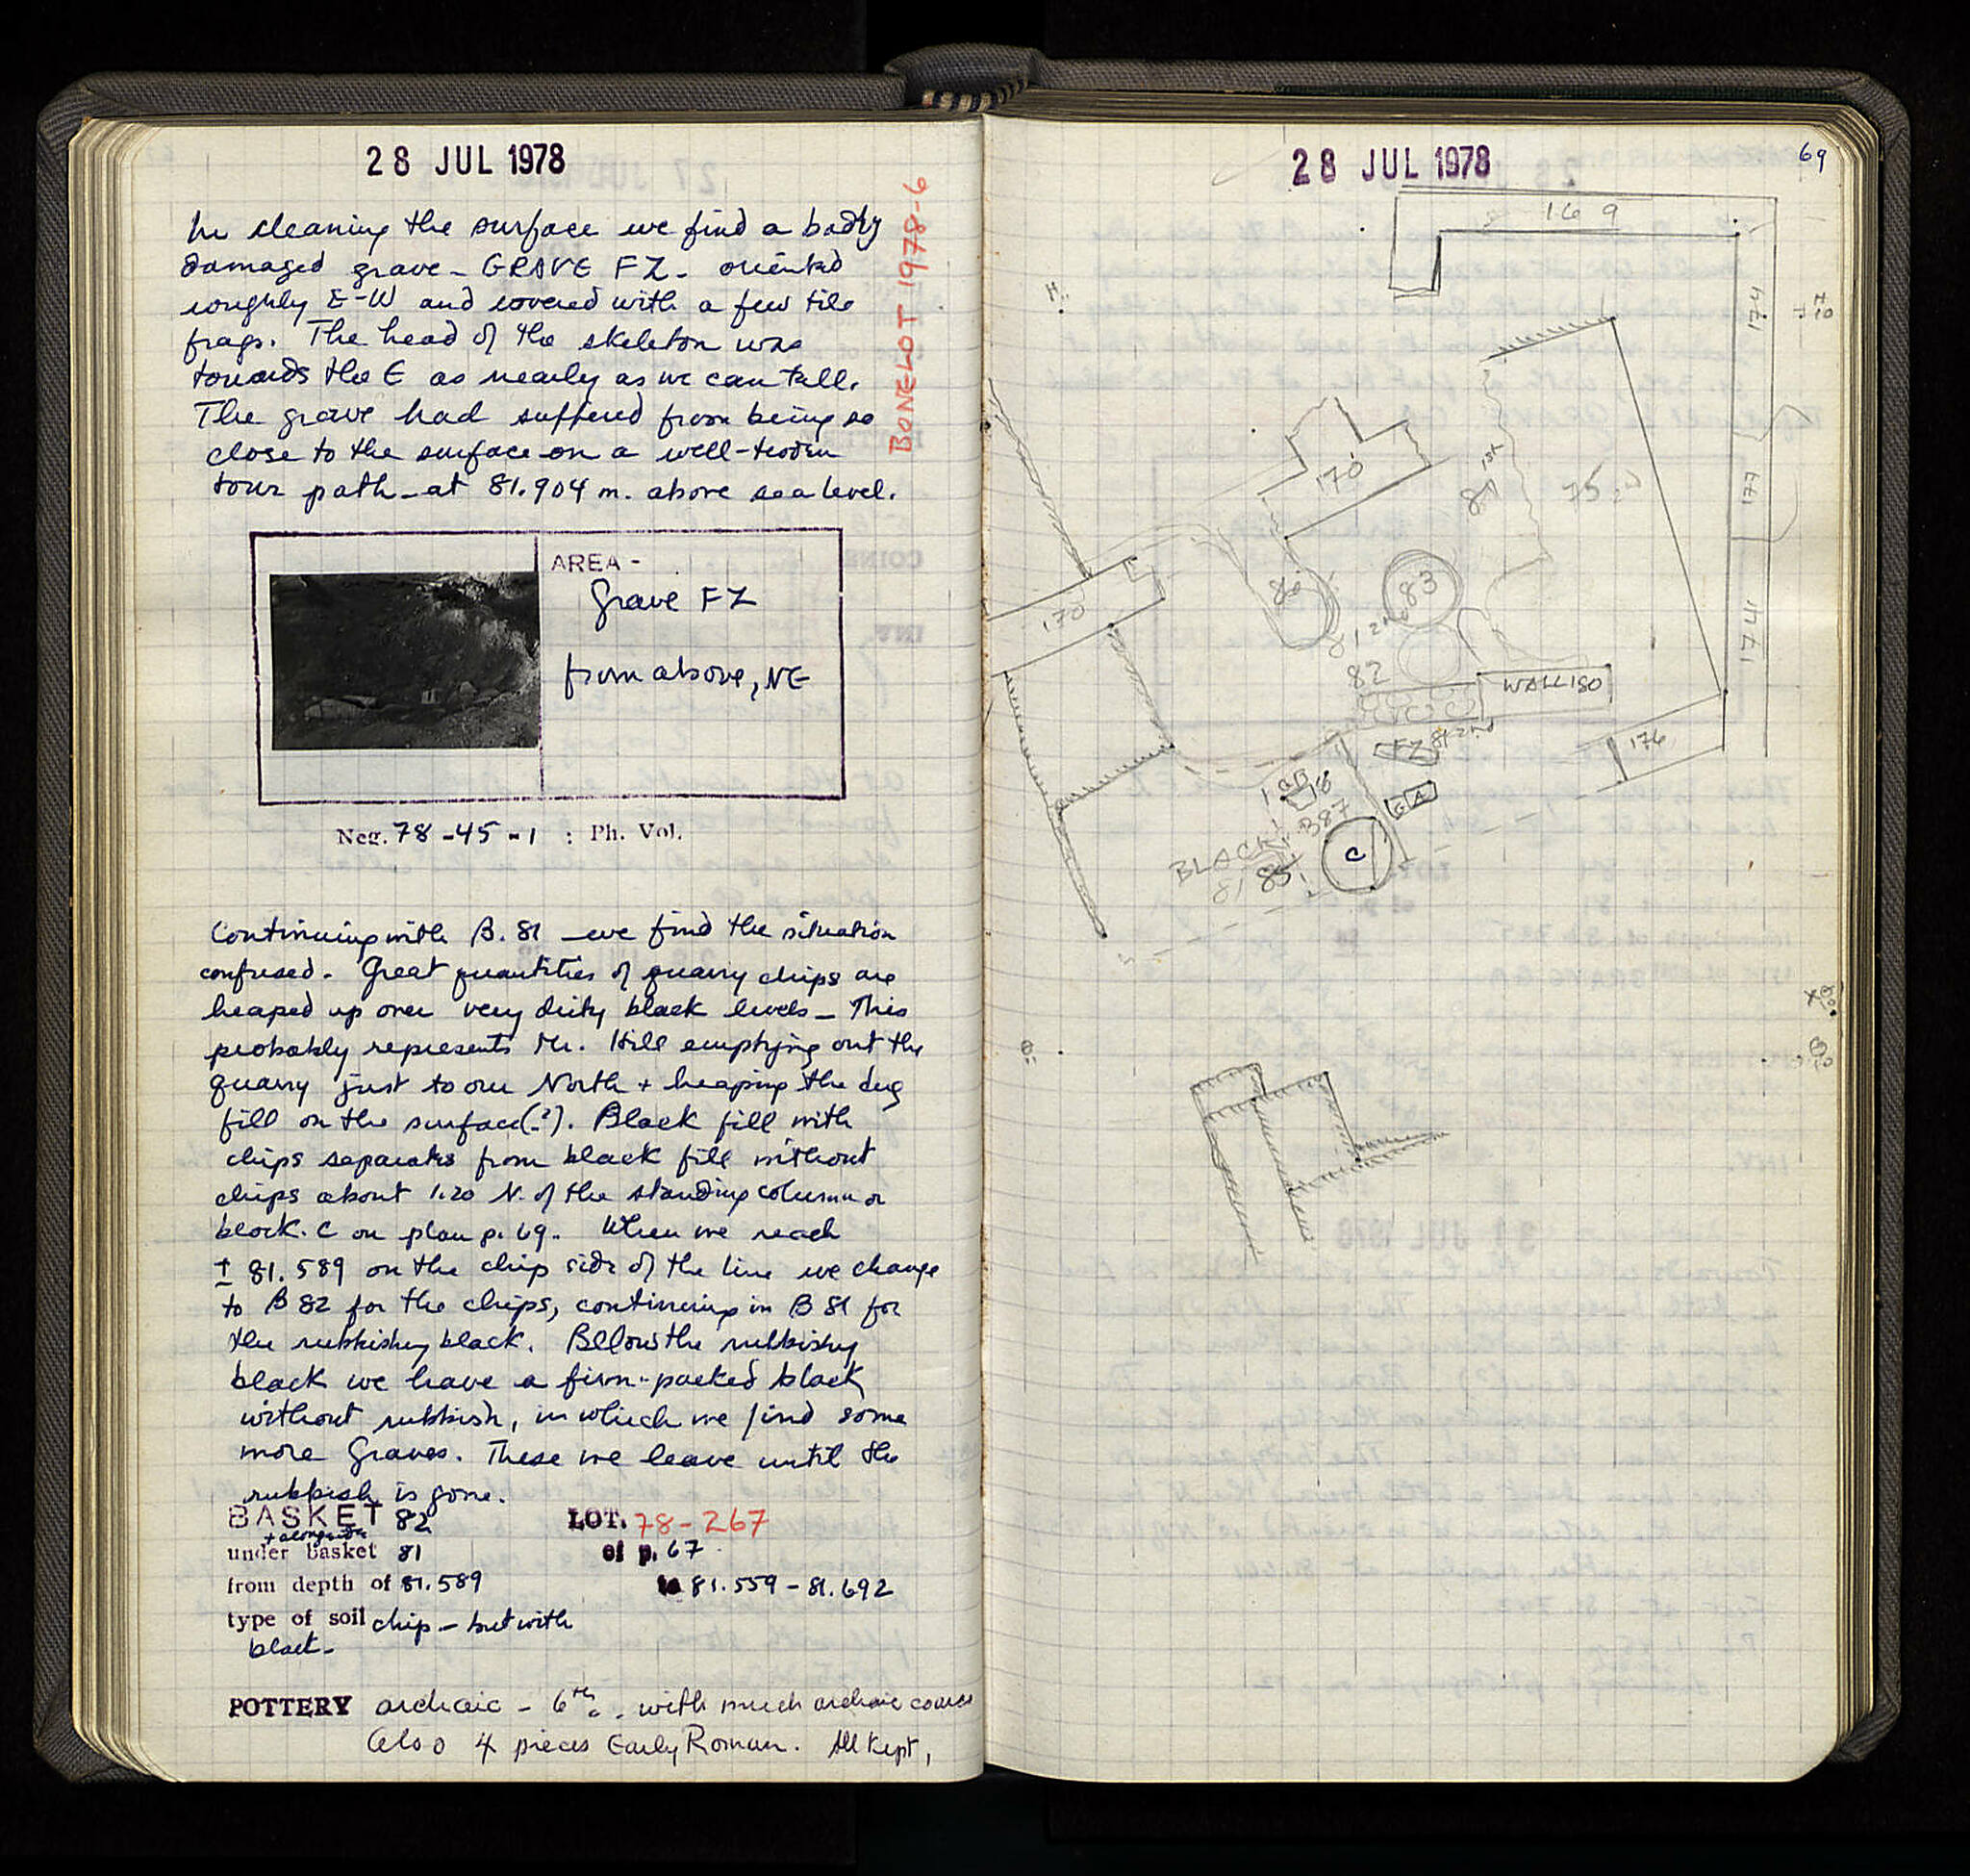 28 JUL 1978
In cleaning the surface we find a badly
damaged grave - GRAVE FZ - oriented
roughly E-W and covered with a few tile
frags. The head of the skeleton was
towards the E as nearly as we can tell.
The grave had suffered from being so
close to the surface on a well-trodden
tour path - at 81.904 m. above sea level.
BONELOT 1978-6
AREA -
Grave FZ
from above, NE
Neg. 78-45-1 : Ph. Vol.
Continuing with B. 81 - we find the situation
confused. Great quantities of quarry chips are
heaped up over very dirty black levels - This
probably represents Mr. Hill emptying out the
quarry just to our North + heaping the dug
fill on the surface(?). Black fill with
chips separates from black fill without
chips about 1.20 N. of the standing column or
block. C on plan p. 69. When we reach
± 81.589 on the chip side of the line we change
to B 82 for the chips, continuing in B 81 for
the rubbishy black. Bellow the rubbishy
black we have a firm-packed black
without rubbish, in which we find some
more Graves. These we leave until the
rubbish is gone.
BASKET 82 LOT. 78-267
+ alongside
under basket 81 of p. 67
from depth of 81.589 to 81.559 - 81.692
type of soil chip - but with
black -
POTTERY archaic - 6th c. with much archaic coarse
Also 4 pieces Early Roman. All kept,
28 JUL 1978
69
169
174
170
81 1st
75 2nd
177
171
80
83
170
81 2nd
82
WALL 180
FZ 81 2nd
176
GB
GA
B87
BLACK
C
81 85